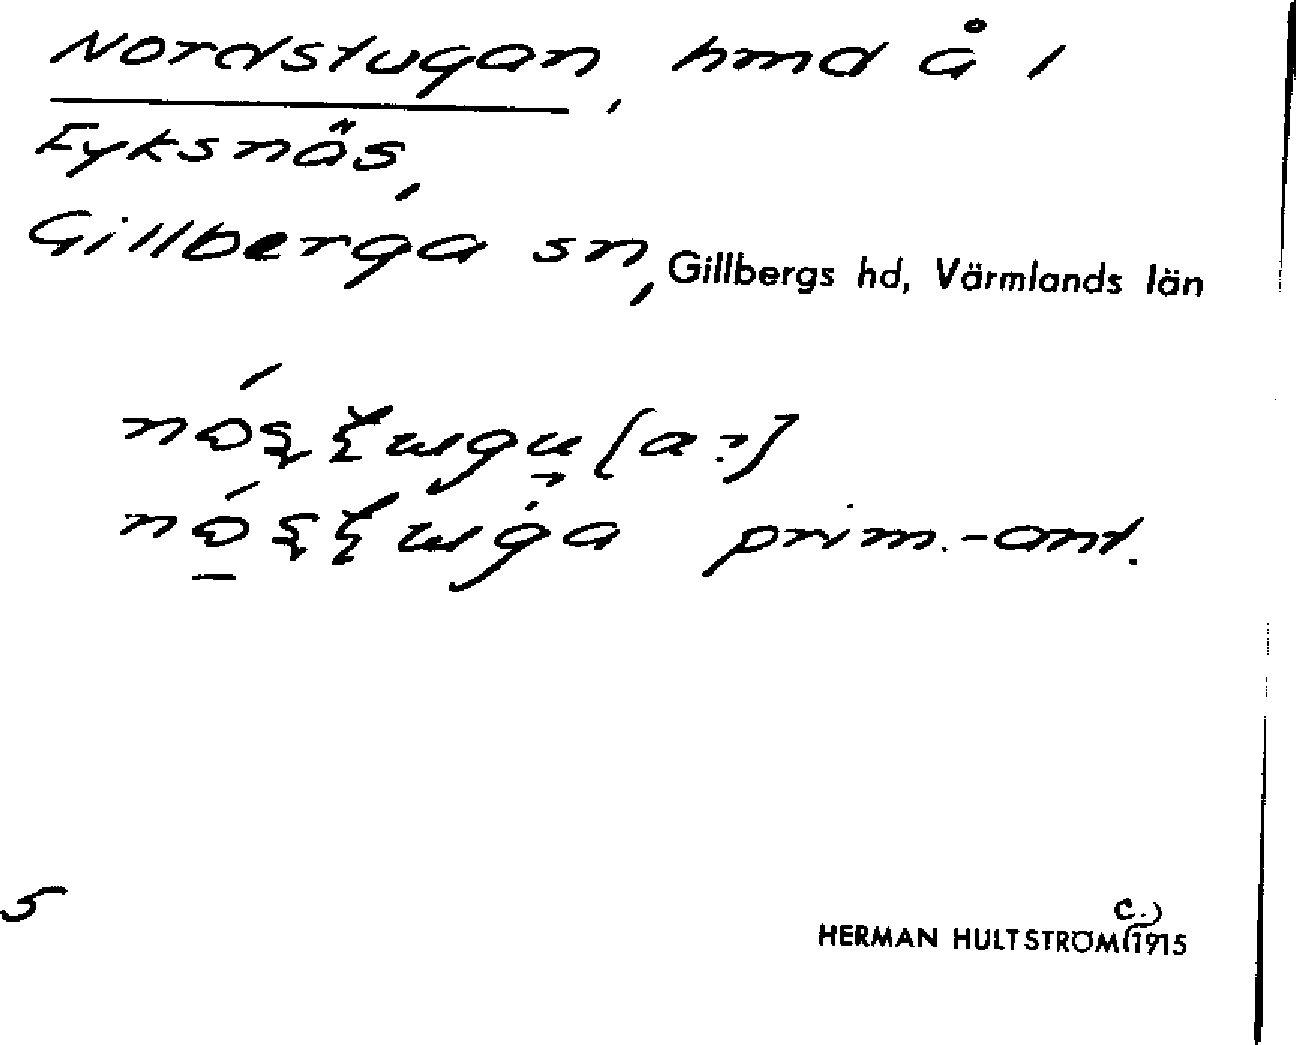 Nordstugan, hmd å 1
Eyksnäs,
Gillberga sn, Gillbergs hd, Värmlands län
prim.-ant.
5
HERMAN HULTSTRÖM (c.) 1915